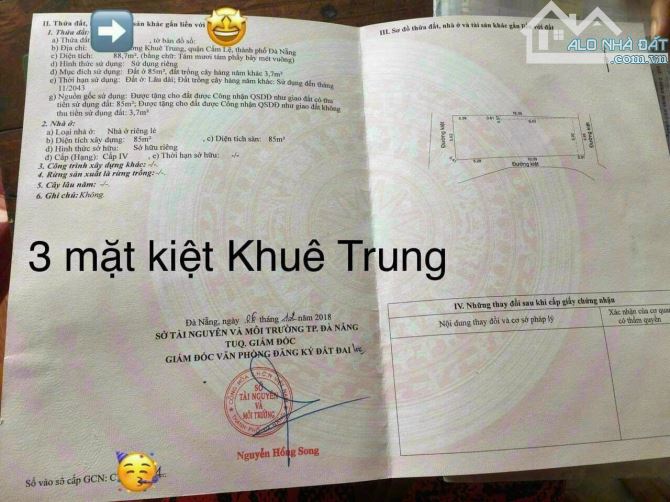 II. Thửa đất, sản khác gắn liền với
1. Thửa đất:
a) Thửa đất , tờ bản đồ số:
b) Địa chỉ: Khuê Trung, quận Cẩm Lệ, thành phố Đà Nẵng
c) Diện tích: 88,7m² (bằng chữ: Tám mươi tám phẩy bảy mét vuông)
d) Hình thức sử dụng: Sử dụng riêng
đ) Mục đích sử dụng: Đất ở 85m², đất trồng cây hàng năm khác 3,7m²
e) Thời hạn sử dụng: Đất ở: Lâu dài; Đất trồng cây hàng năm khác: Sử dụng đến tháng
11/2043
g) Nguồn gốc sử dụng: Được tặng cho đất được Công nhận QSDĐ như giao đất có thu
tiền sử dụng đất: 85m²; Được tặng cho đất được Công nhận QSDĐ như giao đất không
thu tiền sử dụng đất: 3,7m²
2. Nhà ở:
a) Loại nhà ở: Nhà ở riêng lẻ
b) Diện tích xây dựng: 85m² , c) Diện tích sàn: 85m²
d) Hình thức sở hữu: Sở hữu riêng
đ) Cấp (Hạng): Cấp IV , e) Thời hạn sở hữu: -/-
3. Công trình xây dựng khác: -/-
4. Rừng sản xuất là rừng trồng: -/-
5. Cây lâu năm: -/-
6. Ghi chú: Không.
III. Sơ đồ thửa đất, nhà ở và tài sản khác gắn liền với đất
ALO NHÀ ĐẤT
Đường kiệt
Đường kiệt
Đường kiệt
3 mặt kiệt Khuê Trung
Đà Nẵng, ngày tháng 12 năm 2018
SỞ TÀI NGUYÊN VÀ MÔI TRƯỜNG TP. ĐÀ NẴNG
TUQ. GIÁM ĐỐC
GIÁM ĐỐC VĂN PHÒNG ĐĂNG KÝ ĐẤT ĐAI
SỞ
TÀI NGUYÊN
VÀ
MÔI TRƯỜNG
Nguyễn Hồng Song
Số vào sổ cấp GCN: C
IV. Những thay đổi sau khi cấp giấy chứng nhận
Nội dung thay đổi và cơ sở pháp lý
Xác nhận của cơ quan
có thẩm quyền